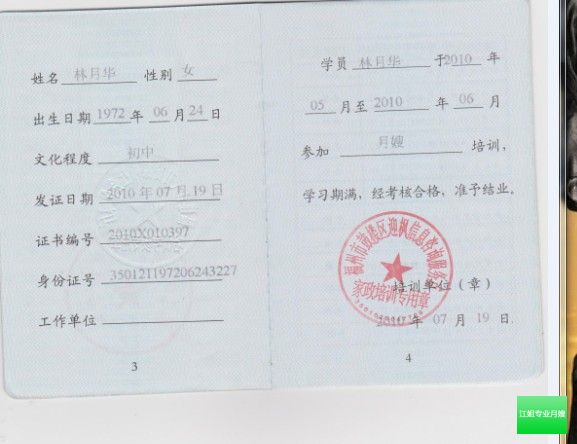 姓名 林月华 性别 女
出生日期 1972 年 06 月 24 日
文化程度 初中
发证日期 2010 年 07 月 19 日
证书编号 2010X010397
身份证号 350121197206243227
工作单位
3
学员 林月华 于2010 年
05 月至 2010 年 06 月
参加 月嫂 培训,
学习期满，经考核合格，准予结业。
福州市鼓楼区迎枫信息咨询服务
家政培训专用章
培训单位（章）
2010 年 07 月 19 日.
4
江姐专业月嫂